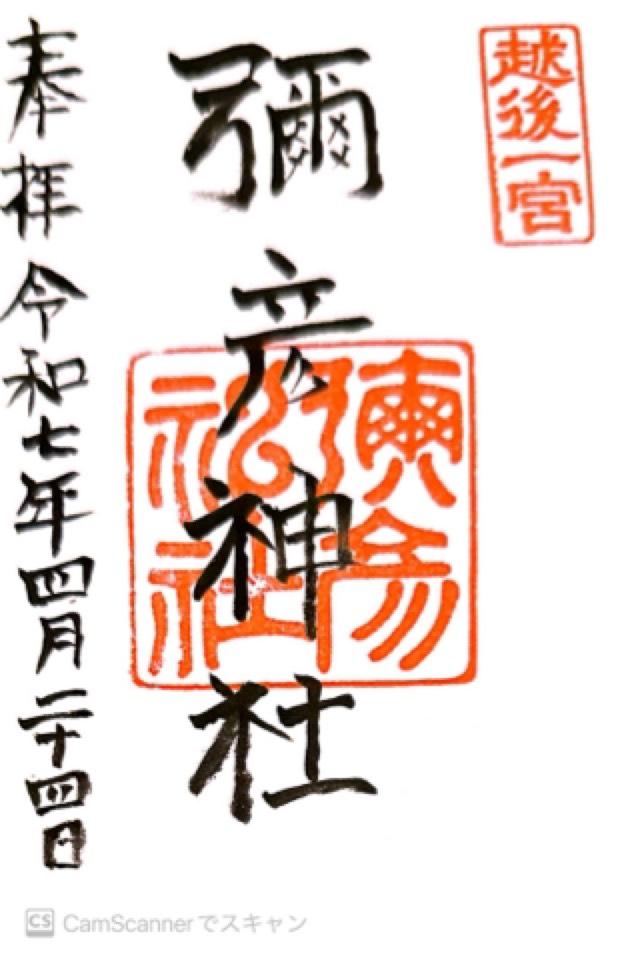 越後一宮
彌彦神社
彌彦神社
奉拝 令和七年四月二十四日
CS CamScannerでスキャン